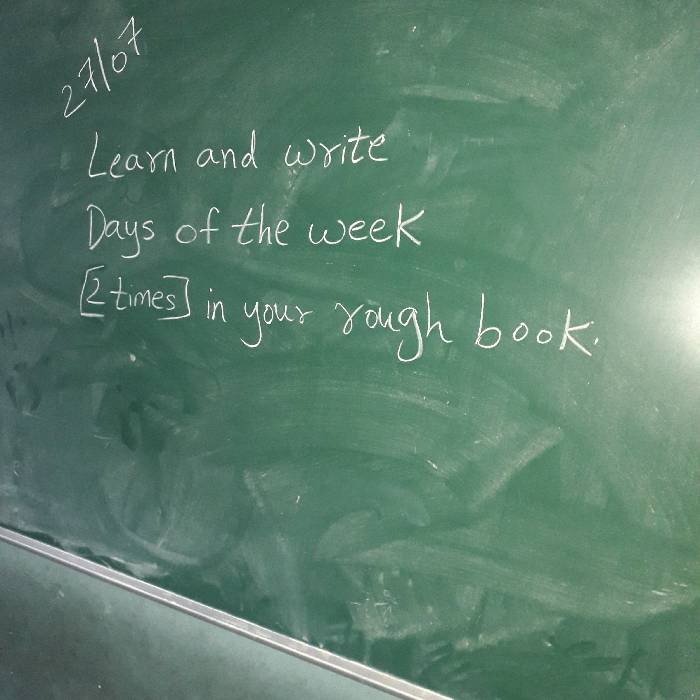 27/07
Learn and write
Days of the week
[2 times] in your rough book.